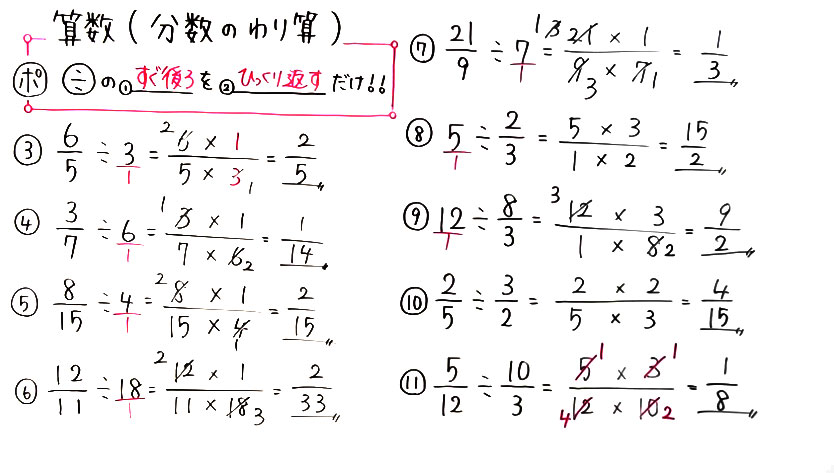 算数(分数のわり算)
ポ ÷の①すぐ後ろを②ひっくり返すだけ!!
③ 6/5 ÷ 3/1 = 6 2 × 1 / 5 × 3 1 = 2/5
④ 3/7 ÷ 6/1 = 3 1 × 1 / 7 × 6 2 = 1/14
⑤ 8/15 ÷ 4/1 = 8 2 × 1 / 15 × 4 1 = 2/15
⑥ 12/11 ÷ 18/1 = 12 2 × 1 / 11 × 18 3 = 2/33
⑦ 21/9 ÷ 7/1 = 1 3 21 × 1 / 9 3 × 7 1 = 1/3
⑧ 5/1 ÷ 2/3 = 5 × 3 / 1 × 2 = 15/2
⑨ 12/1 ÷ 8/3 = 3 12 × 3 / 1 × 8 2 = 9/2
⑩ 2/5 ÷ 3/2 = 2 × 2 / 5 × 3 = 4/15
⑪ 5/12 ÷ 10/3 = 5 1 × 3 1 / 4 12 × 10 2 = 1/8